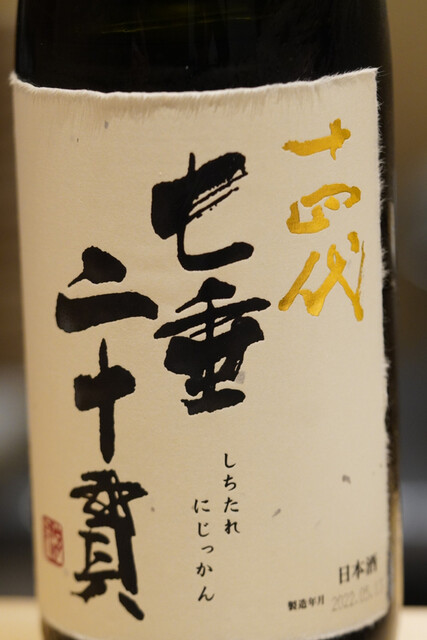 十四代
七垂
二十貫
しちたれ
にじっかん
日本酒
製造年月